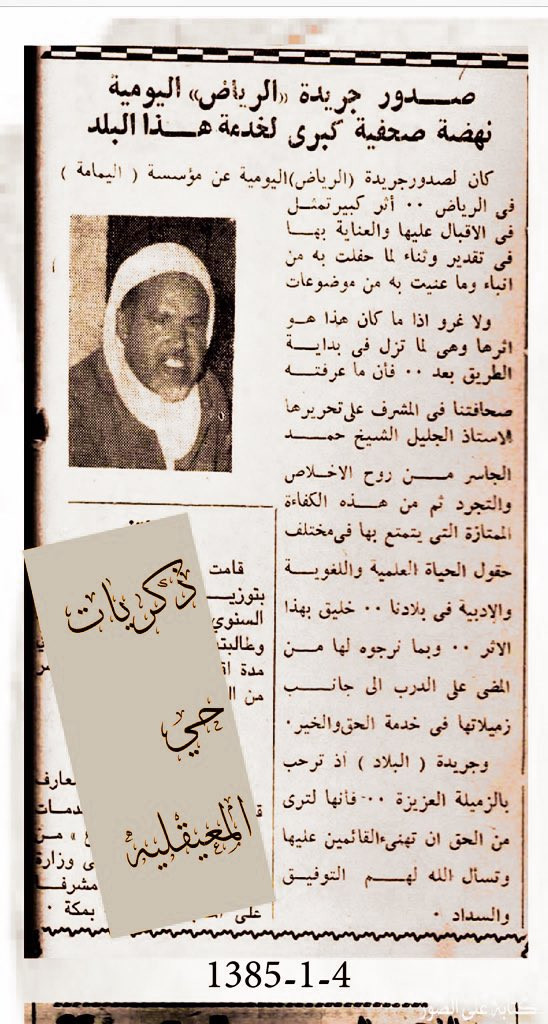 صـــدور جريدة «الرياض» اليومية
نهضة صحفية كبرى لخدمة هـــذا البلد
كان لصدورجريدة (الرياض)اليومية عن مؤسسة ( اليمامة )
فى الرياض ٠٠ أثر كبيرتمثـل
فى الاقبال عليها والعناية بهـا
فى تقدير وثناء لما حفلت به من
انباء وما عنيت به من موضوعات
ولا غرو اذا ما كان هذا هــو
اثرها وهى لما تزل فى بدايـة
الطريق بعد ٠٠ فأن ما عرفتــه
صحافتنا فى المشرف علىتحريرها
الاستاذ الجليل الشيخ حمــد
الجاسر مــن روح الاخـلاص
والتجرد ثم من هــذه الكفاءة
الممتازة التى يتمتع بها فىمختلف
حقول الحياة العلمية واللغويـة
والادبية فى بلادنا ٠٠ خليق بهذا
الاثر ٠٠ وبما نرجوه لها مــن
المضى على الدرب الى جانــب
زميلاتها فى خدمة الحق والخير٠
وجريدة ( البلاد ) اذ ترحب
بالزميلة العزيزة ٠٠ فأنها لترى
من الحق ان تهنىءالقائمين عليها
وتسأل الله لهــم التوفيق
والسداد ٠
قامت
بتوزيـ
السنوى
وطالبته
مدة
من
عارف
دمات
من
ى وزارة
مشرفـا
على
بمكة ٠
ذكريات
حي
المعيقليه
1385-1-4
كتابة على الصور